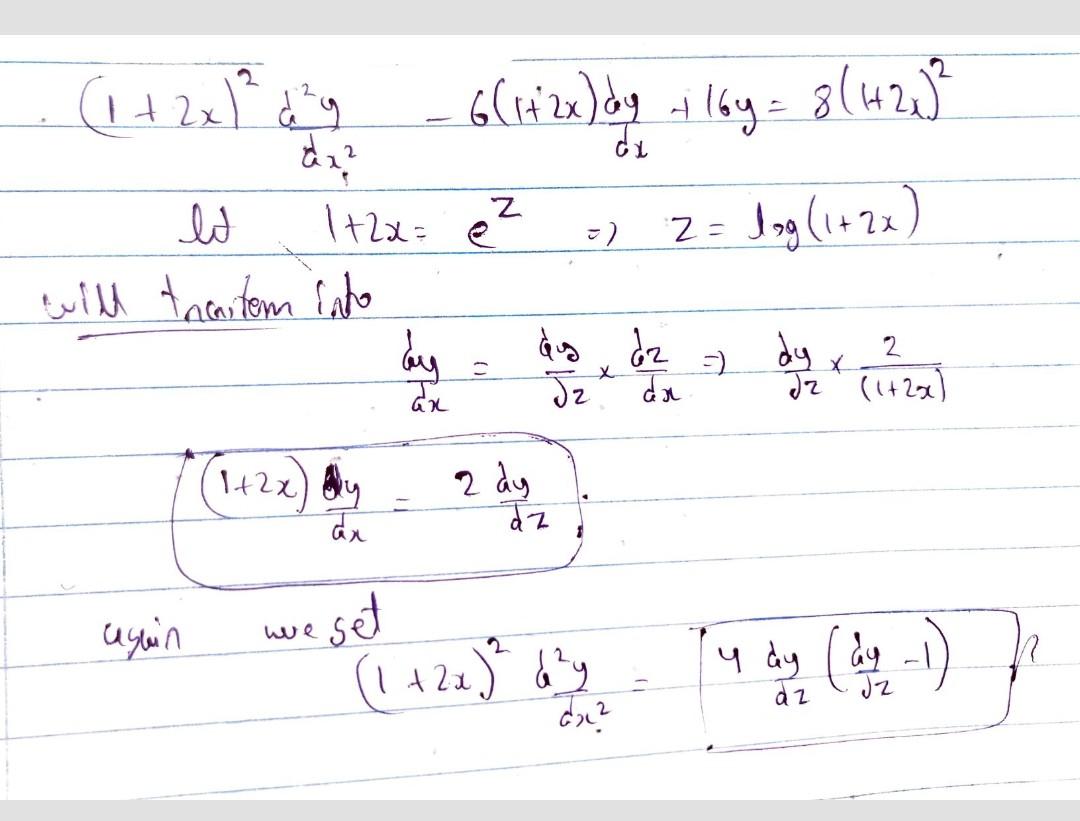 (1+2x)² d²y/dx² - 6(1+2x) dy/dx + 16y = 8(1+2x)²
let 1+2x = e^z => z = log(1+2x)
will into
dy/dx = dy/dz × dz/dx => dy/dz × 2/(1+2x)
(1+2x) dy/dx = 2 dy/dz .
again we set
(1+2x)² d²y/dx² = 4 dy/dz (dy/dz - 1)